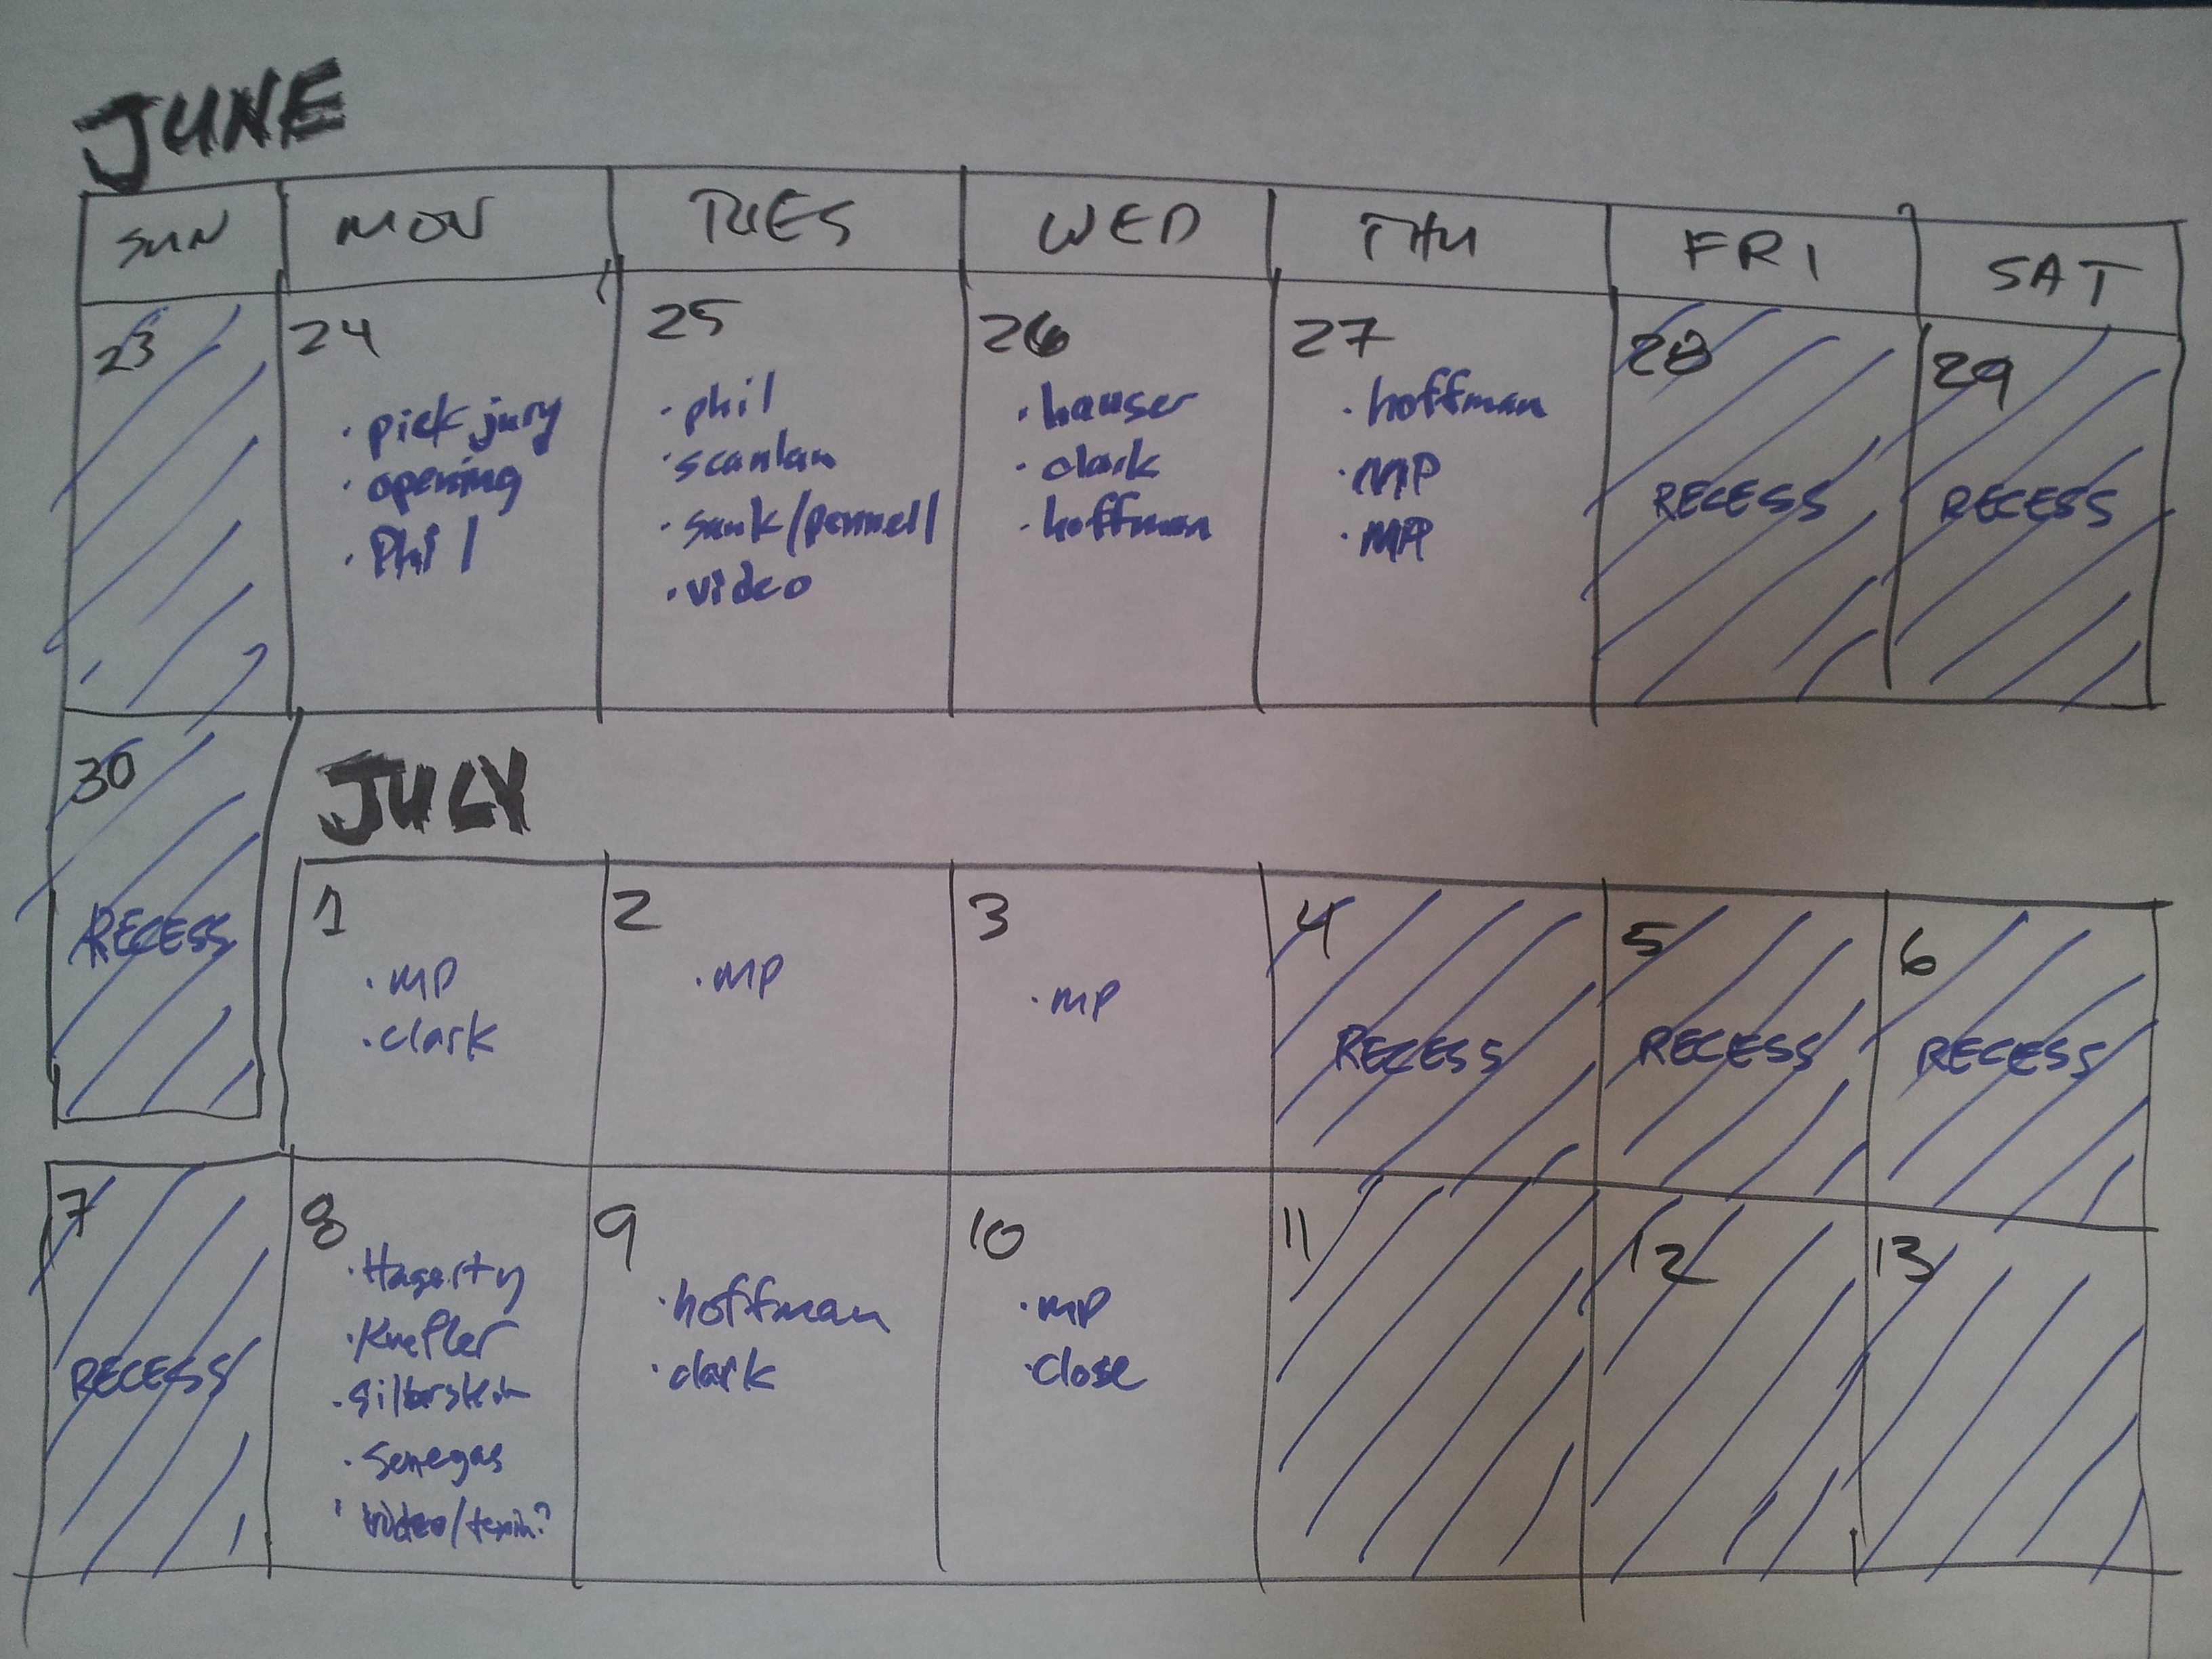 JUNE
SUN MON TUES WED THU FRI SAT
23
24
· pick jury
· opening
· Phil
25
· phil
· scanlan
· sunk/pennell
· video
26
· hauser
· clark
· hoffman
27
· hoffman
· MP
· MP
28
RECESS
29
RECESS
30
RECESS
JULY
1
· MP
· clark
2
· MP
3
· MP
4
RECESS
5
RECESS
6
RECESS
7
RECESS
8
· Hagerty
· Knefler
· Silberstein
· Senegas
· video/
9
· hoffman
· clark
10
· MP
· Close
11
12
13